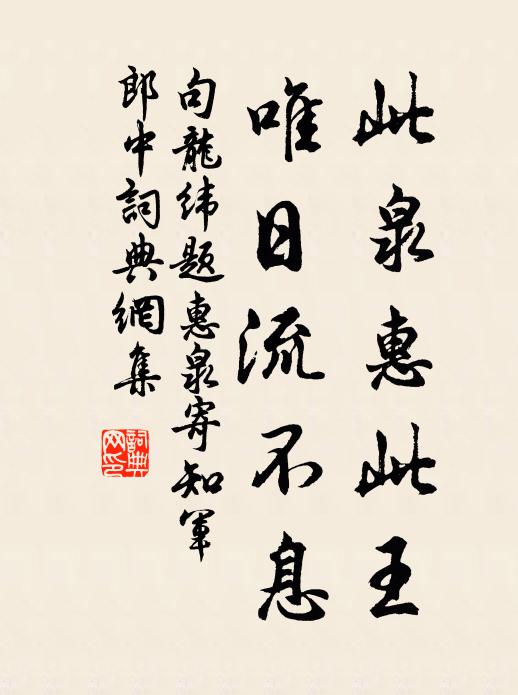 此泉惠此王
唯日流不息
句龍緯題惠泉寄知軍
郎中詞典網集
詞典網印